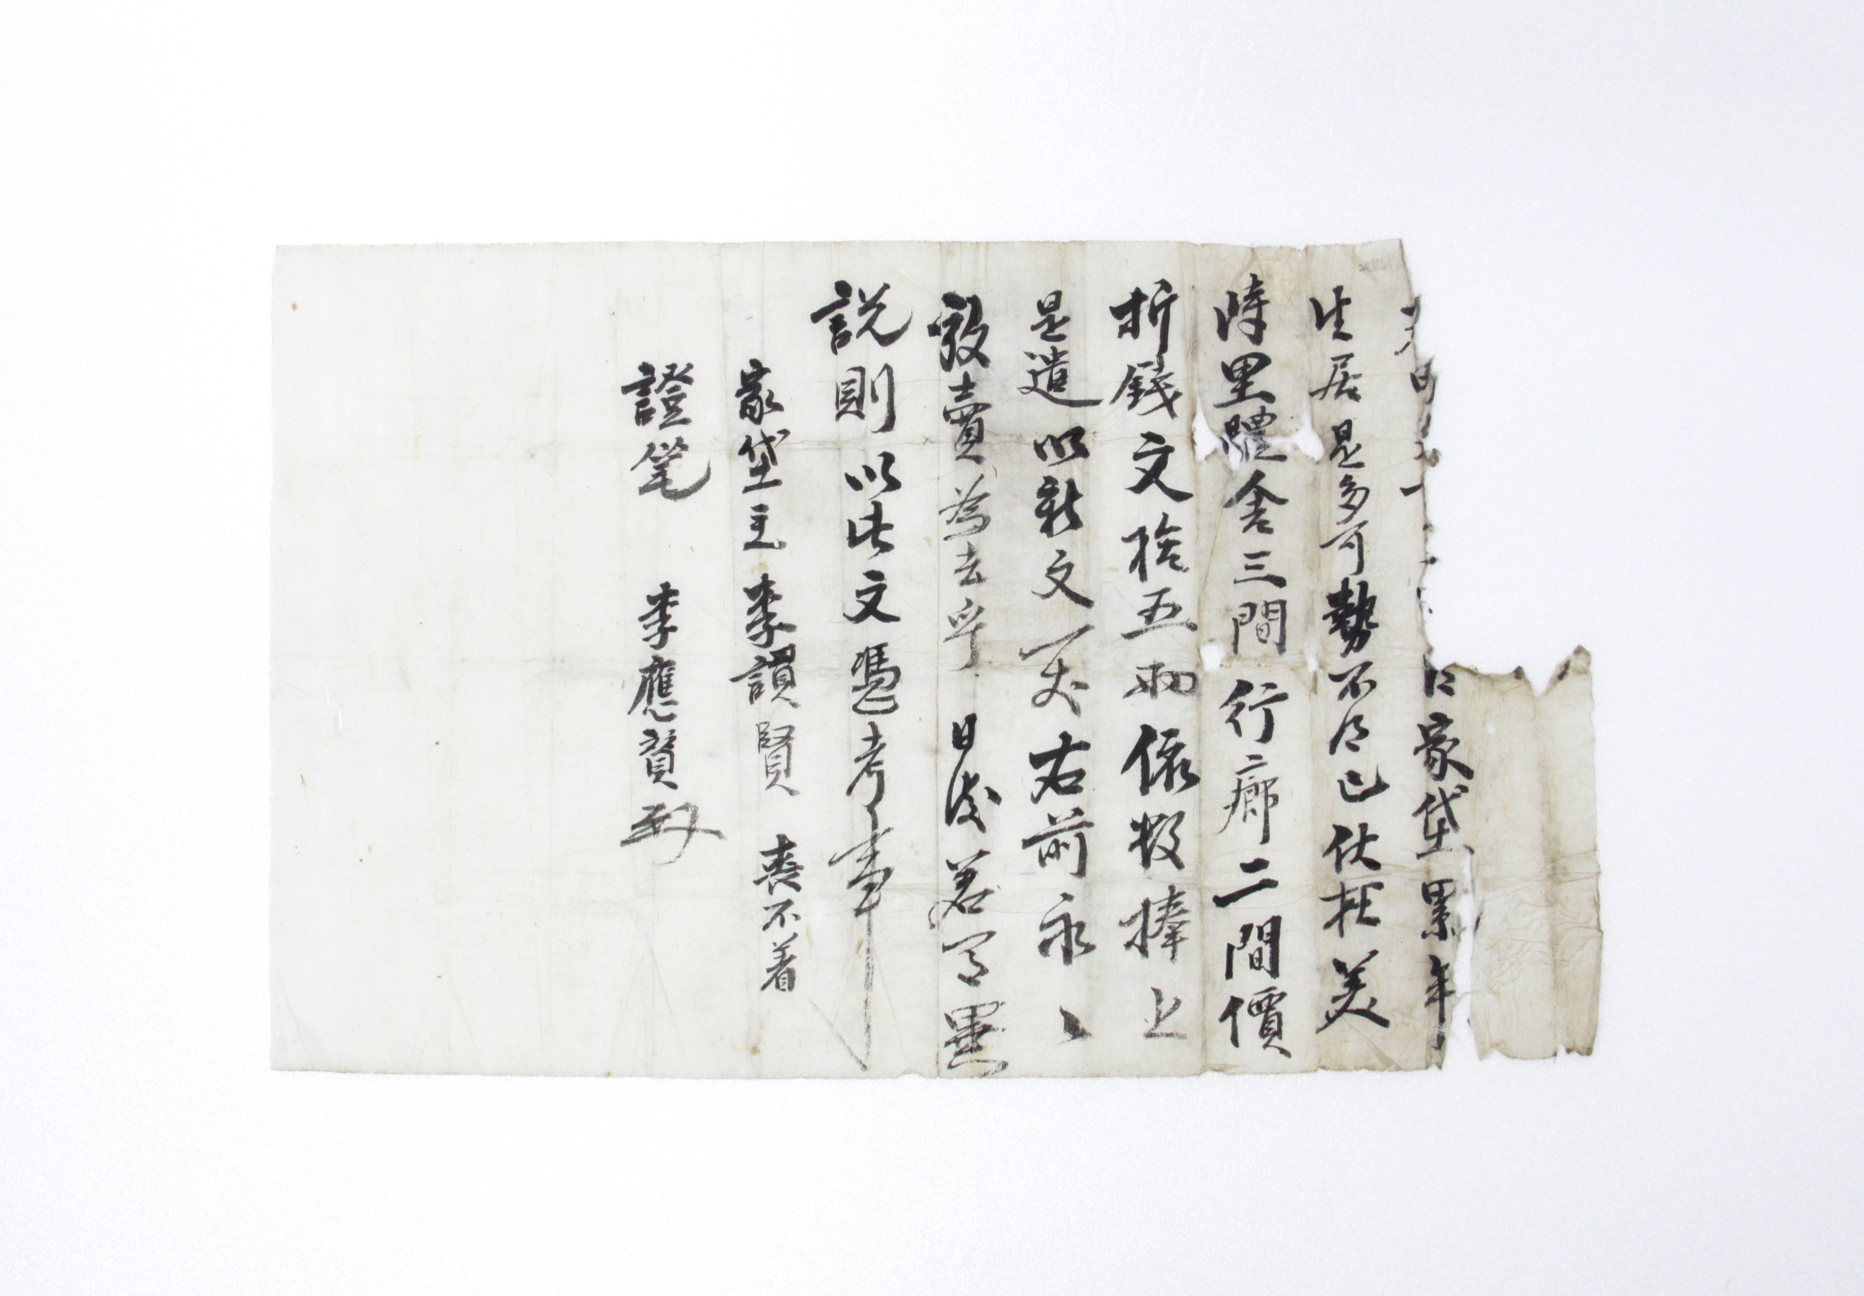 家垈累年
生居是多可勢不得已伏在美
峙里體舍三間行廊二間價
折錢文拾五兩依數捧上
是遣以新文一丈右前永〻
放賣爲去乎日後若有異
說則以此文憑考事
家垈主李讚賢喪不着
證筆李應贊